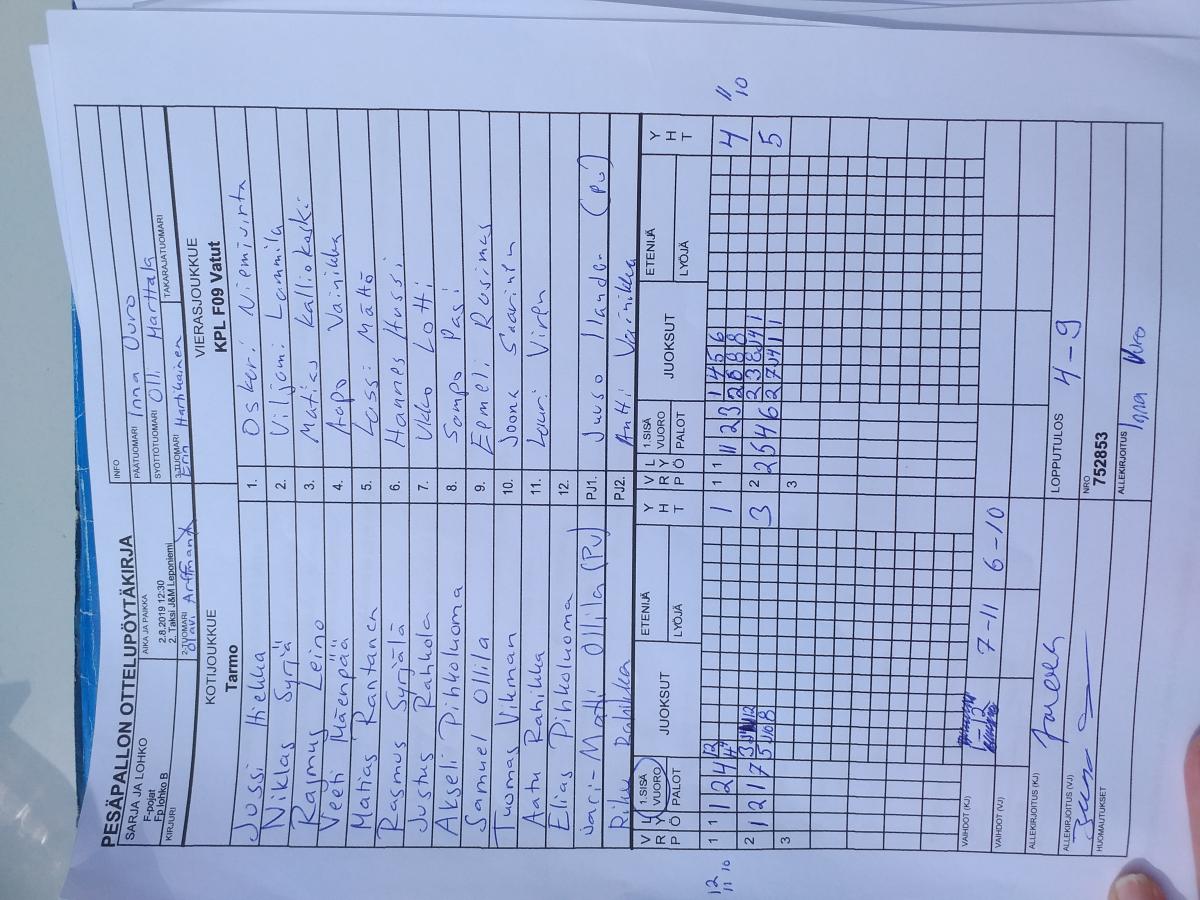 PESÄPALLON OTTELUPÖYTÄKIRJA
SARJA JA LOHKO
F-pojat
Fp lohko B
KIRJURI
AIKA JA PAIKKA
2.8.2019 12:30
2. Taksi J&M Leponiemi
2-TUOMARI
INFO
PÄÄTUOMARI Inna Uuro
SYÖTTÖTUOMARI Olli Marttala
3-TUOMARI Hartikainen
TAKARAJATUOMARI
KOTIJOUKKUE
Tarmo
VIERASJOUKKUE
KPL F09 Vatut
Jussi Hiekka 1. Oskari Niemivirta
Niklas Syrjä 2. Viljami Lammila
Rasmus Leino 3. Matias Kalliokoski
Veeti Mäenpää 4. Aapo Vainikka
Matias Rantanen 5. Lassi Mättö
Rasmus Syrjälä 6. Hannes Hussi
Justus Rahkola 7. Ukko Lotti
Akseli Pihkoluoma 8. Sampo Pasi
Samuel Ollila 9. Eemeli Rasimas
Tuomas Vikman 10. Joona Saarinen
Aatu Rahikka 11. Lauri Viren
Elias Pihkoluoma 12.
Jari-Matti Ollila (PV) PJ1. Juuso (PV)
Riku Rahikka PJ2. Antti Vainikka
V R P
L Y Ö
1.SISÄ VUORO
PALOT
JUOKSUT
ETENIJÄ
LYÖJÄ
Y H T
V R P
L Y Ö
1.SISÄ VUORO
PALOT
JUOKSUT
ETENIJÄ
LYÖJÄ
Y H T
1 1 1 2 4 1
1 1 11 2 3 4
2 1 2 1 7 3
2 2 5 4 6 5
3
3
12 11 10
11 10
VAIHDOT (KJ)
VAIHDOT (VJ) 7-11 6-10
ALLEKIRJOITUS (KJ)
ALLEKIRJOITUS (VJ)
HUOMAUTUKSET
LOPPUTULOS 4-9
NRO
752853
ALLEKIRJOITUS Inna Uuro